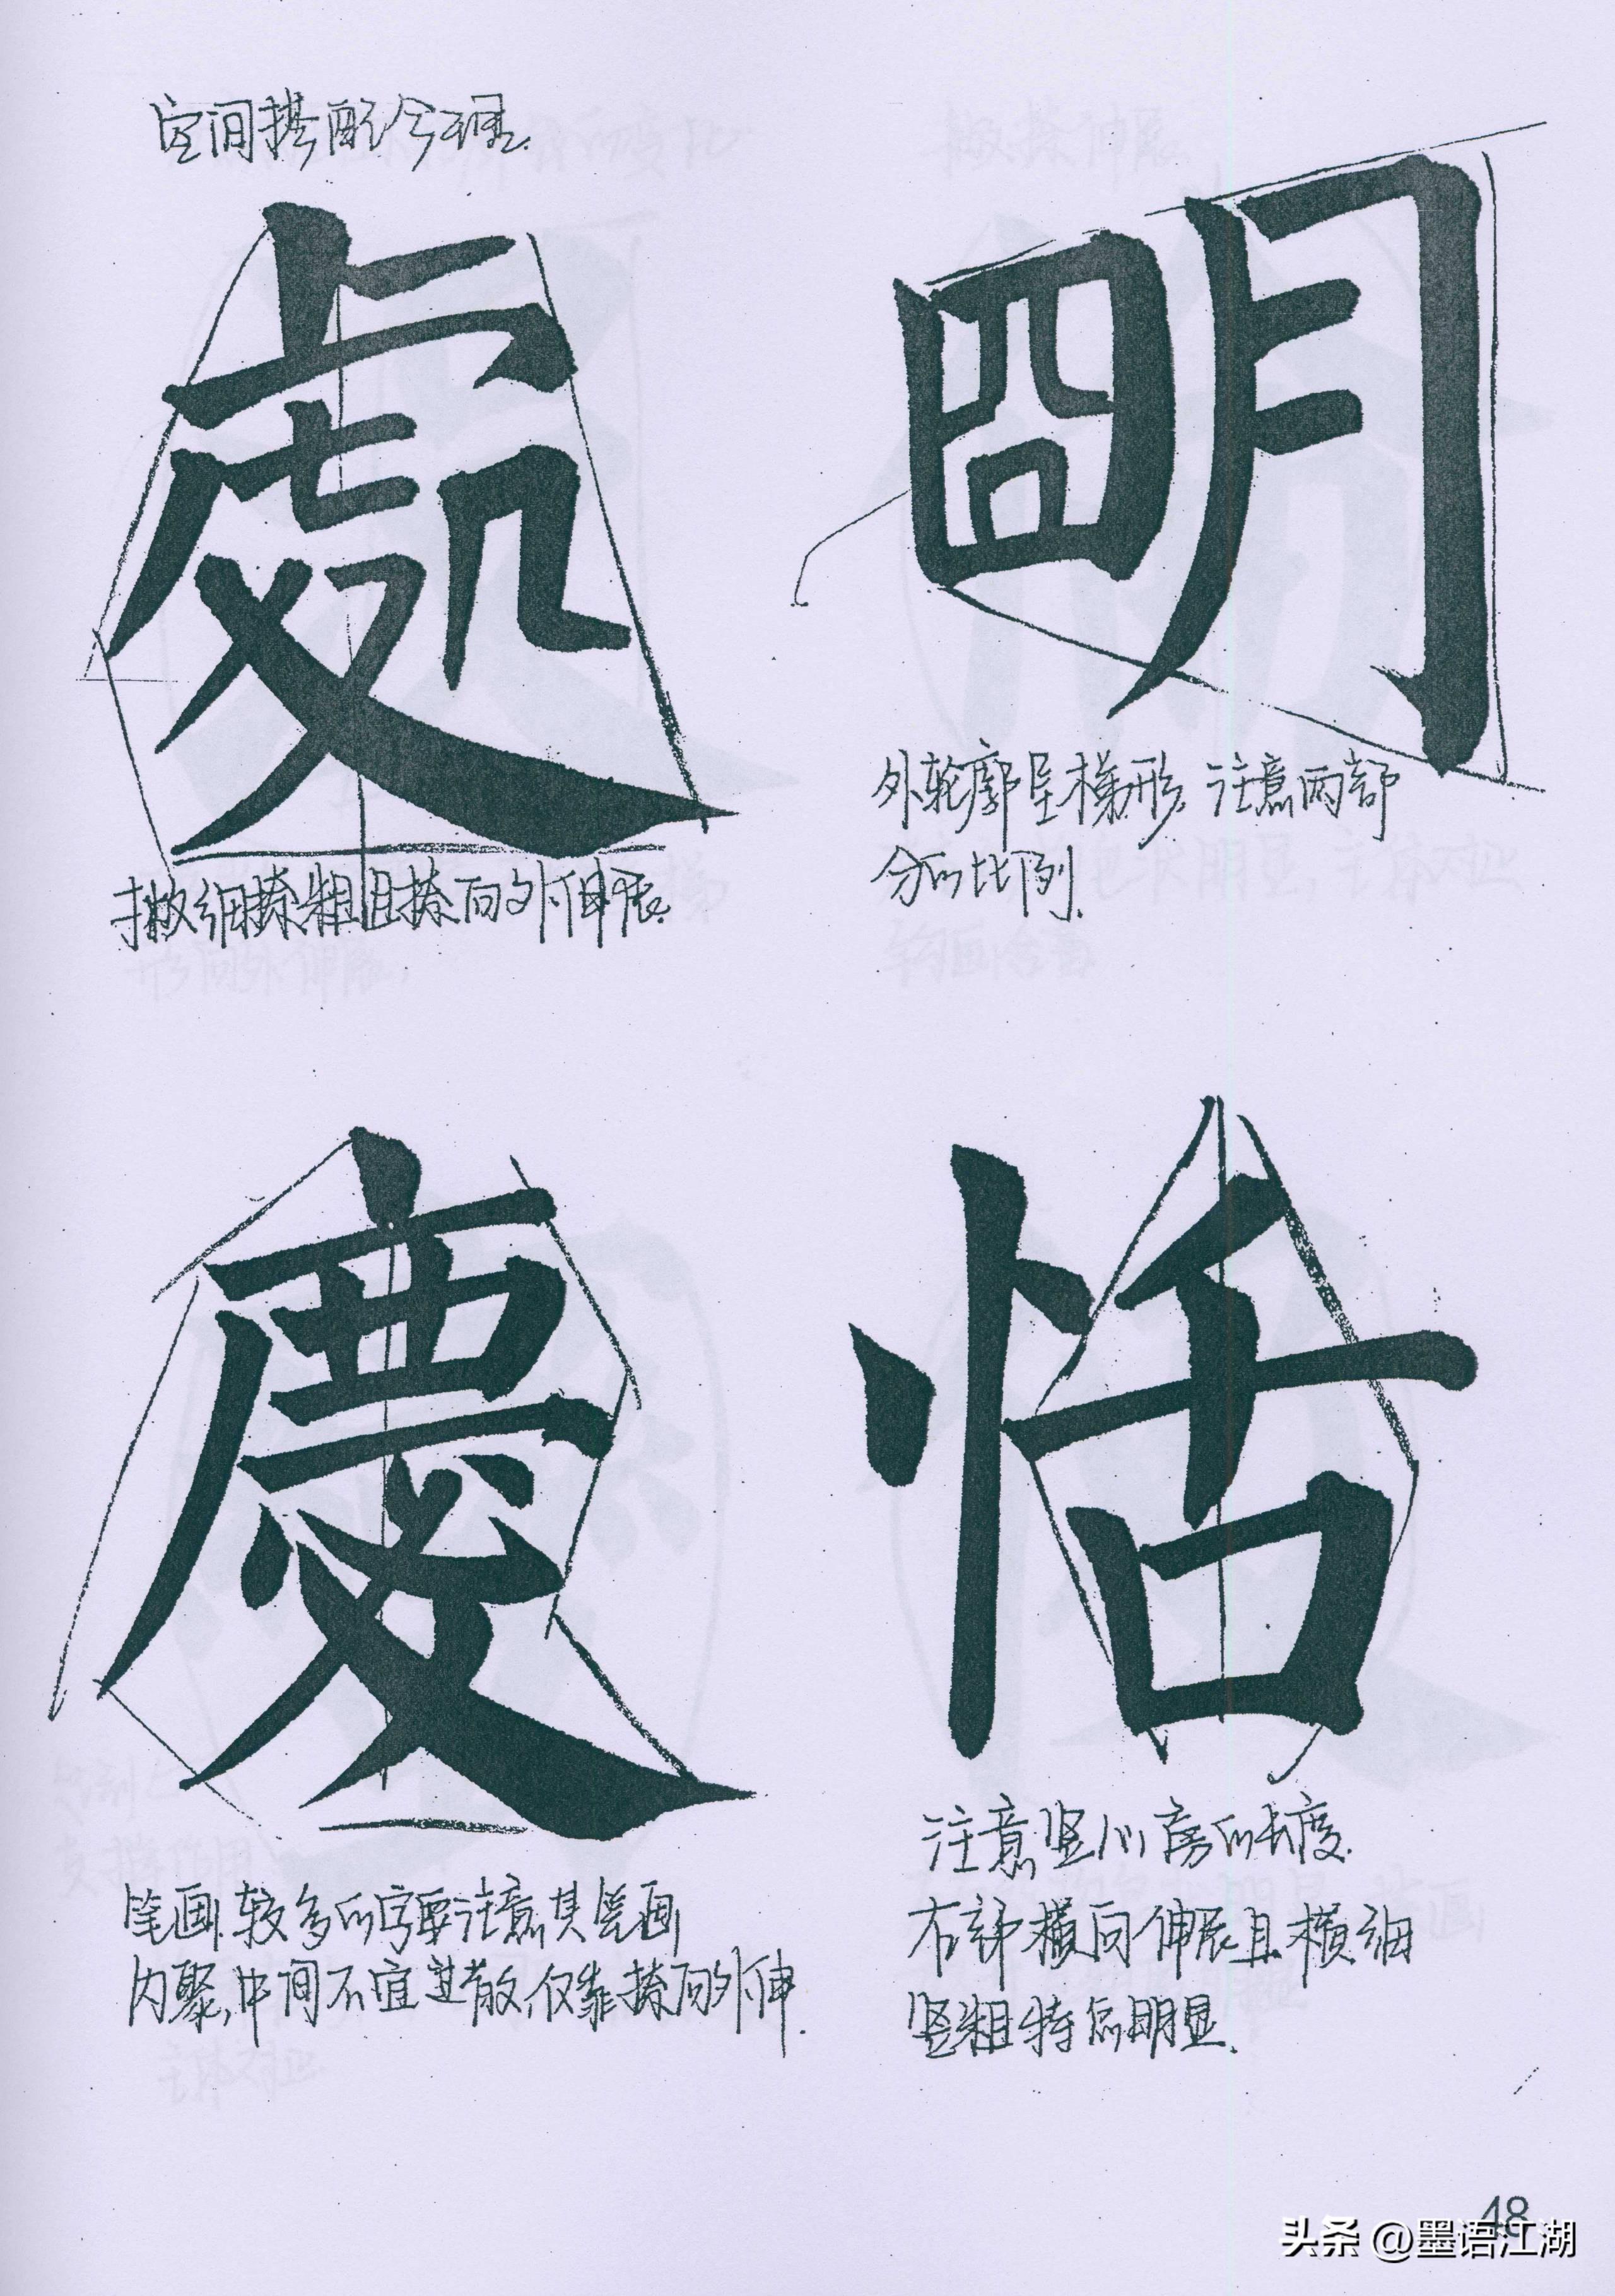 空间搭配合理.
處
撇细捺粗且捺向外伸展.
明
外轮廓呈梯形.注意两部
分的比例.
慶
笔画较多的字要注意其笔画
内聚,中间不宜过散,仅靠捺向外伸.
恬
注意竖心旁的长度.
右部横向伸展且横细
竖粗特点明显.
48
头条 @墨语江湖